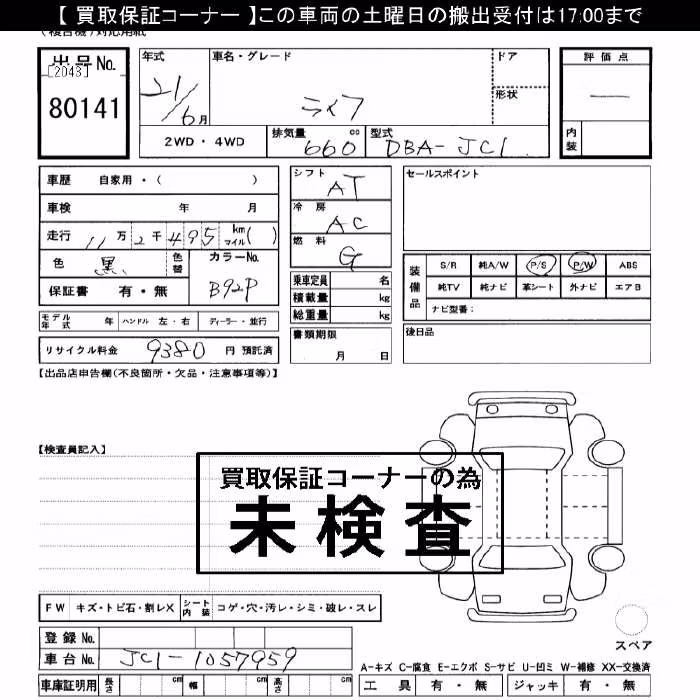 【 買取保証コーナー 】この車両の土曜日の搬出受付は17:00まで
出品No.
[2043]
80141
年式
21/6月
車名・グレード
ライフ
ドア
形状
評価点
―
内装
2WD・4WD
排気量 660 cc
型式 DBA-JC1
車歴 自家用・( )
車検 年 月
走行 11万2千495 km マイル( )
色 黒 色替
カラーNo. B92P
保証書 有・無
シフト AT
冷房 AC
燃料 G
乗車定員 名
積載量 kg
総重量 kg
書類期限
月 日
セールスポイント
装備品
S/R 純A/W P/S P/W ABS
純TV 純ナビ 革シート 外ナビ エアB
ナビ型番:
後日品
モデル年式 年 ハンドル 左・右 ディーラー・並行
リサイクル料金 9380 円 預託済
【出品店申告欄(不良箇所・欠品・注意事項等)】
【検査員記入】
買取保証コーナーの為
未検査
FW キズ・トビ石・割レX シート内装 コゲ・穴・汚レ・シミ・破レ・スレ
登録No.
車台No. JC1-1057959
車庫証明用 長さ cm 幅 cm 高さ cm
スペア
A-キズ C-腐食 E-エクボ S-サビ U-凹ミ W-補修 XX-交換済
工具 有・無 ジャッキ 有・無